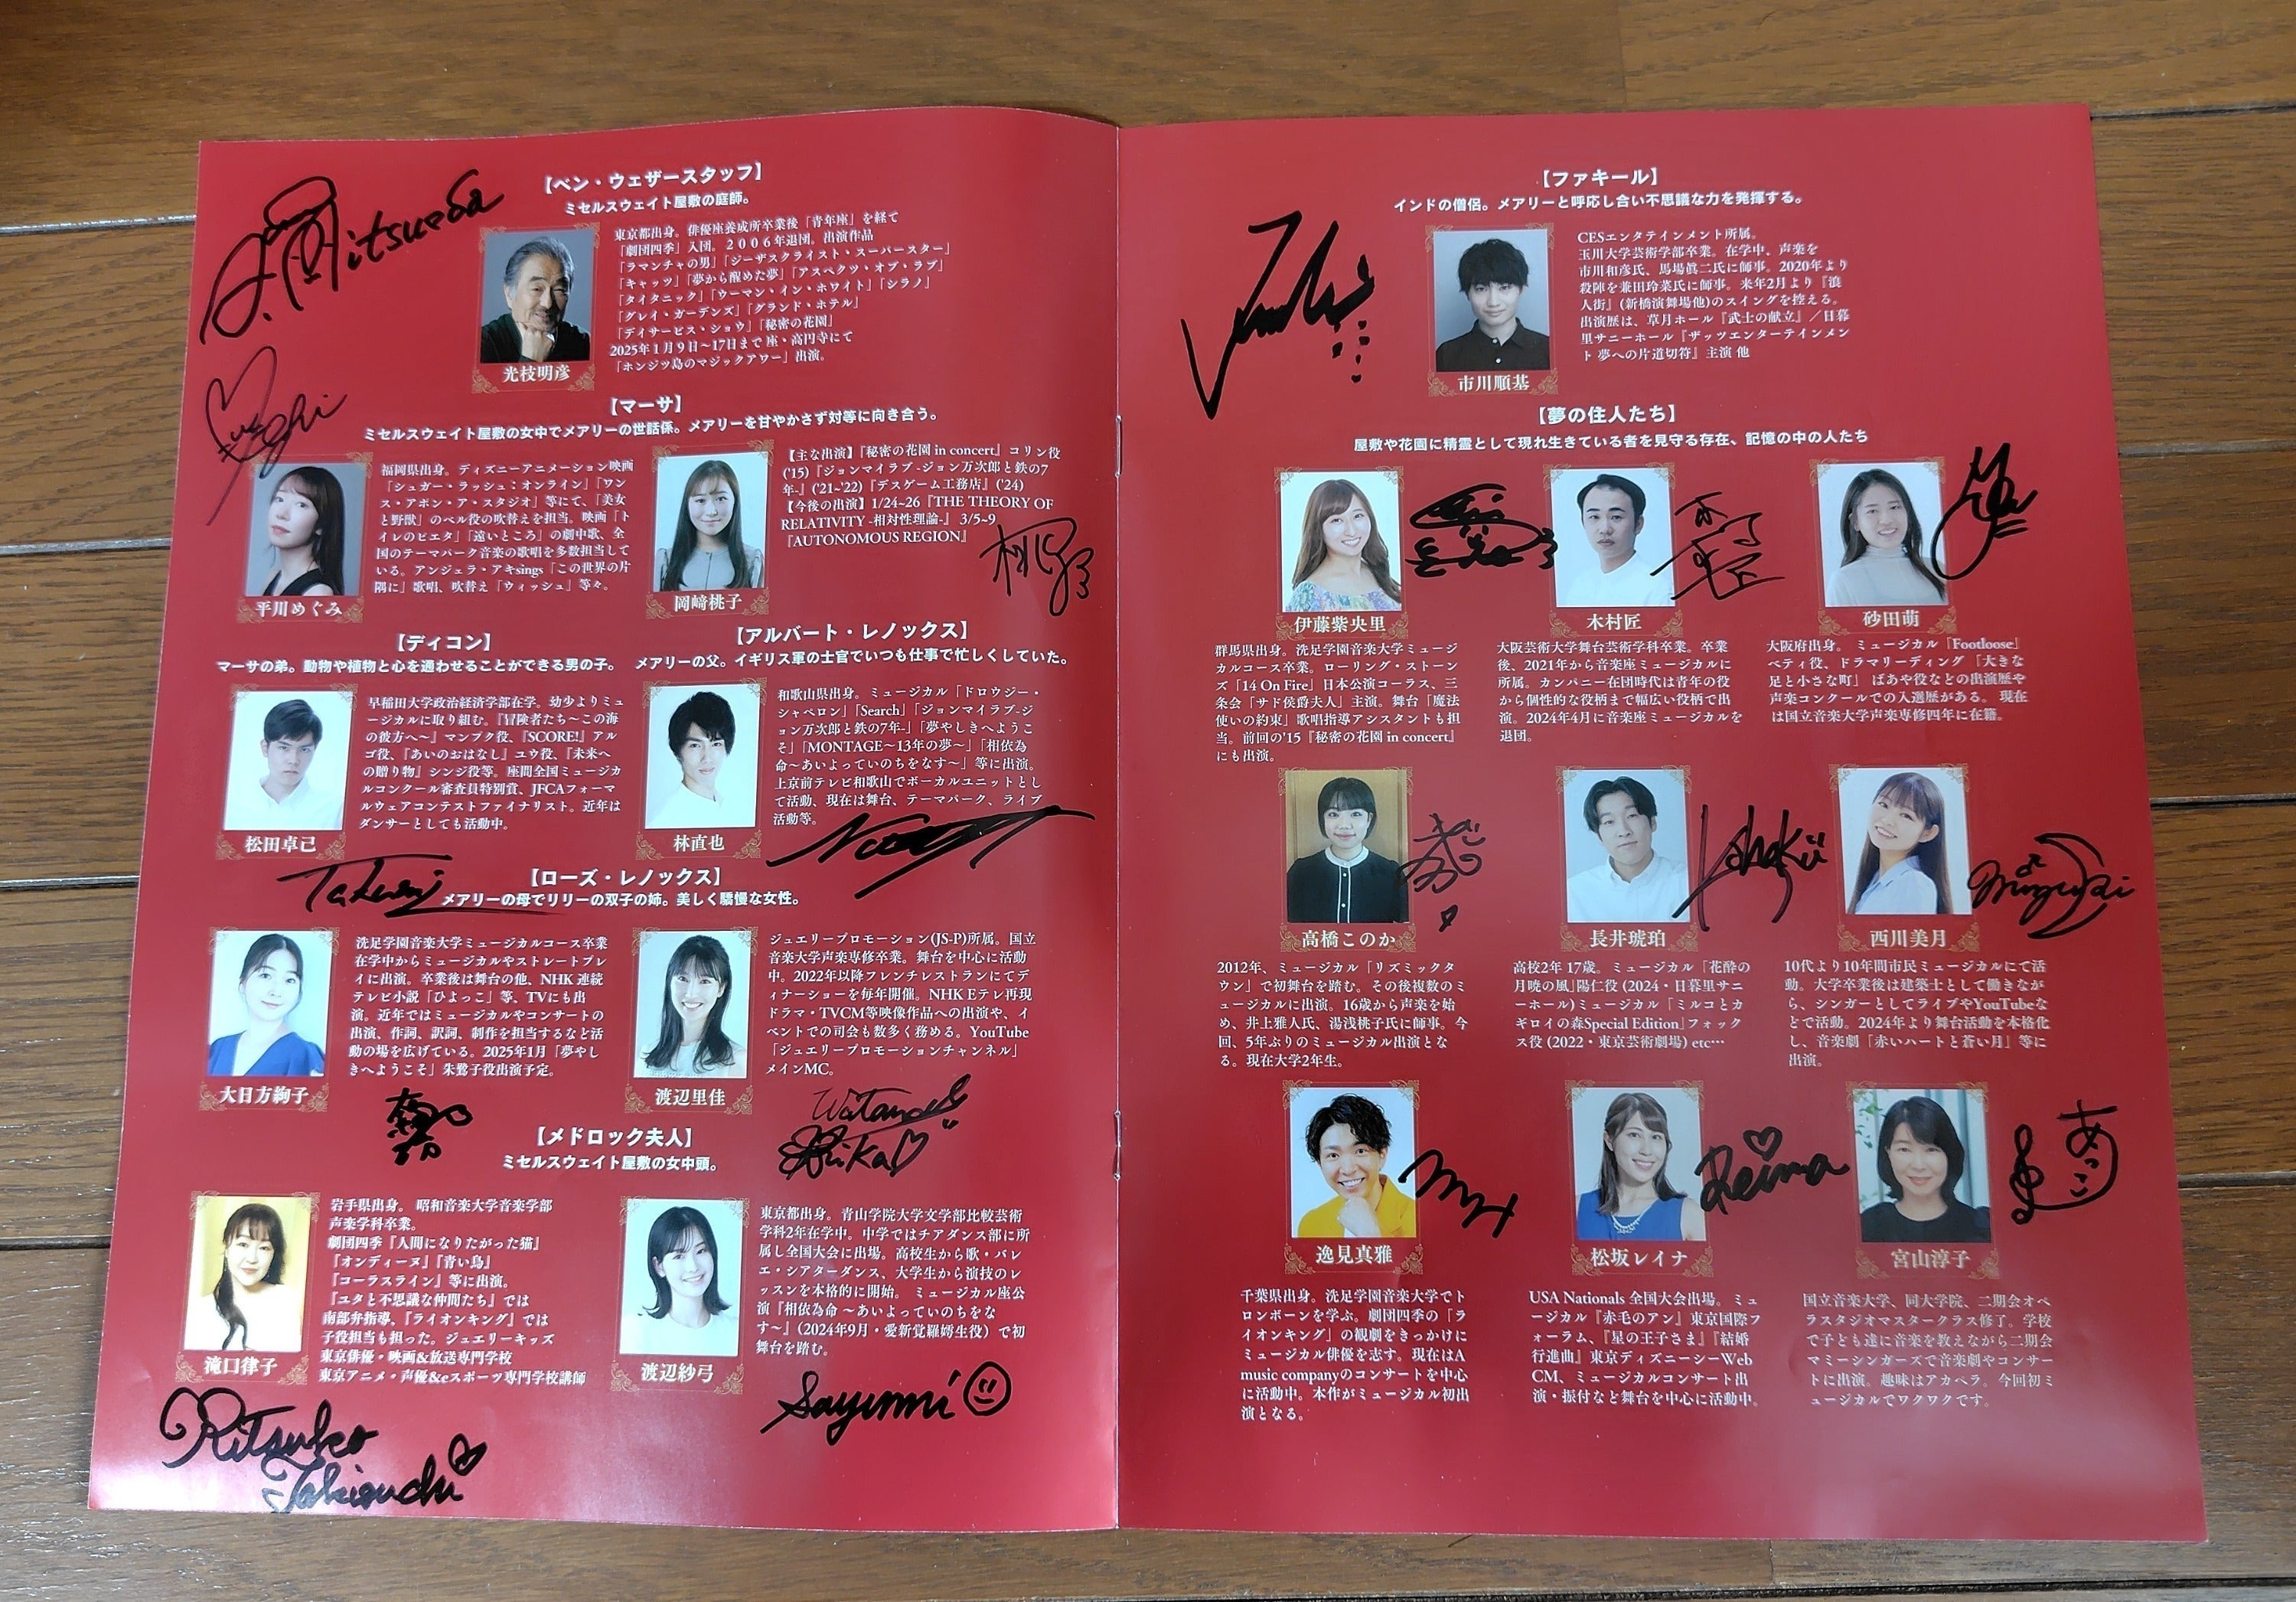 【ベン・ウェザースタッフ】
ミセルスウェイト屋敷の庭師。
東京都出身。俳優座養成所卒業後「青年座」を経て
「劇団四季」入団。２００６年退団。出演作品
「ラマンチャの男」「ジーザスクライスト・スーパースター」
「キャッツ」「夢から醒めた夢」「アスペクツ・オブ・ラブ」
「タイタニック」「ウーマン・イン・ホワイト」「シラノ」
「グレイ・ガーデンズ」「グランド・ホテル」
「デイサービス・ショウ」「秘密の花園」
2025年１月９日～17日まで 座・高円寺にて
「ホンジツ島のマジックアワー」出演。
光枝明彦
A. Mitsueda
【マーサ】
ミセルスウェイト屋敷の女中でメアリーの世話係。メアリーを甘やかさず対等に向き合う。
福岡県出身。ディズニーアニメーション映画
「シュガー・ラッシュ：オンライン」「ワン
ス・アポン・ア・スタジオ」等にて、「美女
と野獣」のベル役の吹替えを担当。映画「ト
イレのピエタ」「遠いところ」の劇中歌、全
国のテーマパーク音楽の歌唱を多数担当して
いる。アンジェラ・アキsings「この世界の片
隅に」歌唱、吹替え「ウィッシュ」等々。
平川めぐみ
【主な出演】『秘密の花園 in concert』コリン役
('15)『ジョンマイラブ -ジョン万次郎と鉄の7
年-』('21~'22)『デスゲーム工務店』('24)
【今後の出演】1/24~26『THE THEORY OF
RELATIVITY -相対性理論-』 3/5~9
『AUTONOMOUS REGION』
岡﨑桃子
桃子
【ディコン】
マーサの弟。動物や植物と心を通わせることができる男の子。
早稲田大学政治経済学部在学。幼少よりミュ
ージカルに取り組む。『冒険者たち～この海
の彼方へ～』マンプク役、『SCORE!』アル
ゴ役、『あいのおはなし』ユウ役、『未来へ
の贈り物』シンジ役等。座間全国ミュージカ
ルコンクール審査員特別賞、JFCAフォーマ
ルウェアコンテストファイナリスト。近年は
ダンサーとしても活動中。
松田卓己
Takumi
【アルバート・レノックス】
メアリーの父。イギリス軍の士官でいつも仕事で忙しくしていた。
和歌山県出身。ミュージカル「ドロウジー・
シャペロン」「Search」「ジョンマイラブ-ジ
ョン万次郎と鉄の7年-」「夢やしきへようこ
そ」「MONTAGE～13年の夢～」「相依為
命～あいよっていのちをなす～」等に出演。
上京前テレビ和歌山でボーカルユニットとし
て活動、現在は舞台、テーマパーク、ライブ
活動等。
林直也
【ローズ・レノックス】
メアリーの母でリリーの双子の姉。美しく驕慢な女性。
洗足学園音楽大学ミュージカルコース卒業
在学中からミュージカルやストレートプレ
イに出演。卒業後は舞台の他、NHK 連続
テレビ小説「ひよっこ」等、TVにも出
演。近年ではミュージカルやコンサートの
出演、作詞、訳詞、制作を担当するなど活
動の場を広げている。2025年1月「夢やし
きへようこそ」朱鷺子役出演予定。
大日方絢子
ジュエリープロモーション(JS-P)所属。国立
音楽大学声楽専修卒業。舞台を中心に活動
中。2022年以降フレンチレストランにてデ
ィナーショーを毎年開催。NHK Eテレ再現
ドラマ・TVCM等映像作品への出演や、イ
ベントでの司会も数多く務める。YouTube
「ジュエリープロモーションチャンネル」
メインMC。
渡辺里佳
Watanabe
Rika
【メドロック夫人】
ミセルスウェイト屋敷の女中頭。
岩手県出身。 昭和音楽大学音楽学部
声楽学科卒業。
劇団四季『人間になりたがった猫』
『オンディーヌ』『青い鳥』
『コーラスライン』等に出演。
『ユタと不思議な仲間たち』では
南部弁指導、『ライオンキング』では
子役担当も担った。ジュエリーキッズ
東京俳優・映画＆放送専門学校
東京アニメ・声優&eスポーツ専門学校講師
滝口律子
Ritsuko
Takiguchi
東京都出身。青山学院大学文学部比較芸術
学科2年在学中。中学ではチアダンス部に所
属し全国大会に出場。高校生から歌・バレ
エ・シアターダンス、大学生から演技のレ
ッスンを本格的に開始。 ミュージカル座公
演『相依為命 ～あいよっていのちをな
す～』(2024年9月・愛新覚羅嫮生役）で初
舞台を踏む。
渡辺紗弓
Sayumi
【ファキール】
インドの僧侶。メアリーと呼応し合い不思議な力を発揮する。
CESエンタテインメント所属。
玉川大学芸術学部卒業。在学中、声楽を
市川和彦氏、馬場眞二氏に師事。2020年より
殺陣を兼田玲菜氏に師事。来年2月より『浪
人街』(新橋演舞場他)のスイングを控える。
出演歴は、草月ホール『武士の献立』／日暮
里サニーホール『ザッツエンターテインメン
ト 夢への片道切符』主演 他
市川順基
【夢の住人たち】
屋敷や花園に精霊として現れ生きている者を見守る存在、記憶の中の人たち
伊藤紫央里
群馬県出身。洗足学園音楽大学ミュージ
カルコース卒業。ローリング・ストーン
ズ「14 On Fire」日本公演コーラス、三
条会「サド侯爵夫人」主演。舞台「魔法
使いの約束」歌唱指導アシスタントも担
当。前回の'15『秘密の花園 in concert』
にも出演。
木村匠
大阪芸術大学舞台芸術学科卒業。卒業
後、2021年から音楽座ミュージカルに
所属。カンパニー在団時代は青年の役
から個性的な役柄まで幅広い役柄で出
演。2024年4月に音楽座ミュージカルを
退団。
砂田萌
大阪府出身。 ミュージカル「Footloose」
ベティ役、ドラマリーディング 「大きな
足と小さな町」 ばあや役などの出演歴や
声楽コンクールでの入選歴がある。 現在
は国立音楽大学声楽専修四年に在籍。
高橋このか
2012年、ミュージカル「リズミックタ
ウン」で初舞台を踏む。その後複数のミ
ュージカルに出演。 16歳から声楽を始
め、井上雅人氏、湯浅桃子氏に師事。今
回、5年ぶりのミュージカル出演とな
る。現在大学2年生。
長井琥珀
Kohaku
高校2年 17歳。ミュージカル「花酔の
月暁の風」陽仁役 (2024・日暮里サニ
ーホール)ミュージカル「ミルコとカ
ギロイの森Special Edition」フォック
ス役 (2022・東京芸術劇場) etc…
西川美月
10代より10年間市民ミュージカルにて活
動。大学卒業後は建築士として働きなが
ら、シンガーとしてライブやYouTubeな
どで活動。2024年より舞台活動を本格化
し、音楽劇「赤いハートと蒼い月」等に
出演。
逸見真雅
千葉県出身。洗足学園音楽大学でト
ロンボーンを学ぶ。劇団四季の「ラ
イオンキング」の観劇をきっかけに
ミュージカル俳優を志す。現在はA
music companyのコンサートを中心
に活動中。本作がミュージカル初出
演となる。
松坂レイナ
Reina
USA Nationals 全国大会出場。 ミュ
ージカル『赤毛のアン』東京国際フ
ォーラム、『星の王子さま』『結婚
行進曲』東京ディズニーシーWeb
CM、ミュージカルコンサート出
演・振付など舞台を中心に活動中。
宮山淳子
あっこ
国立音楽大学、同大学院、二期会オペ
ラスタジオマスタークラス修了。学校
で子ども達に音楽を教えながら二期会
マミーシンガーズで音楽劇やコンサー
トに出演。趣味はアカペラ。今回初ミ
ュージカルでワクワクです。